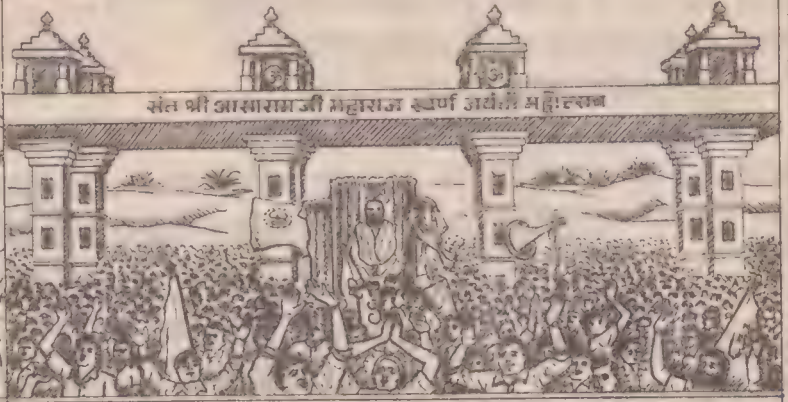 संत श्री आसारामजी महाराज स्वर्ण जयंती महोत्सव
ॐ ॐ
ॐ